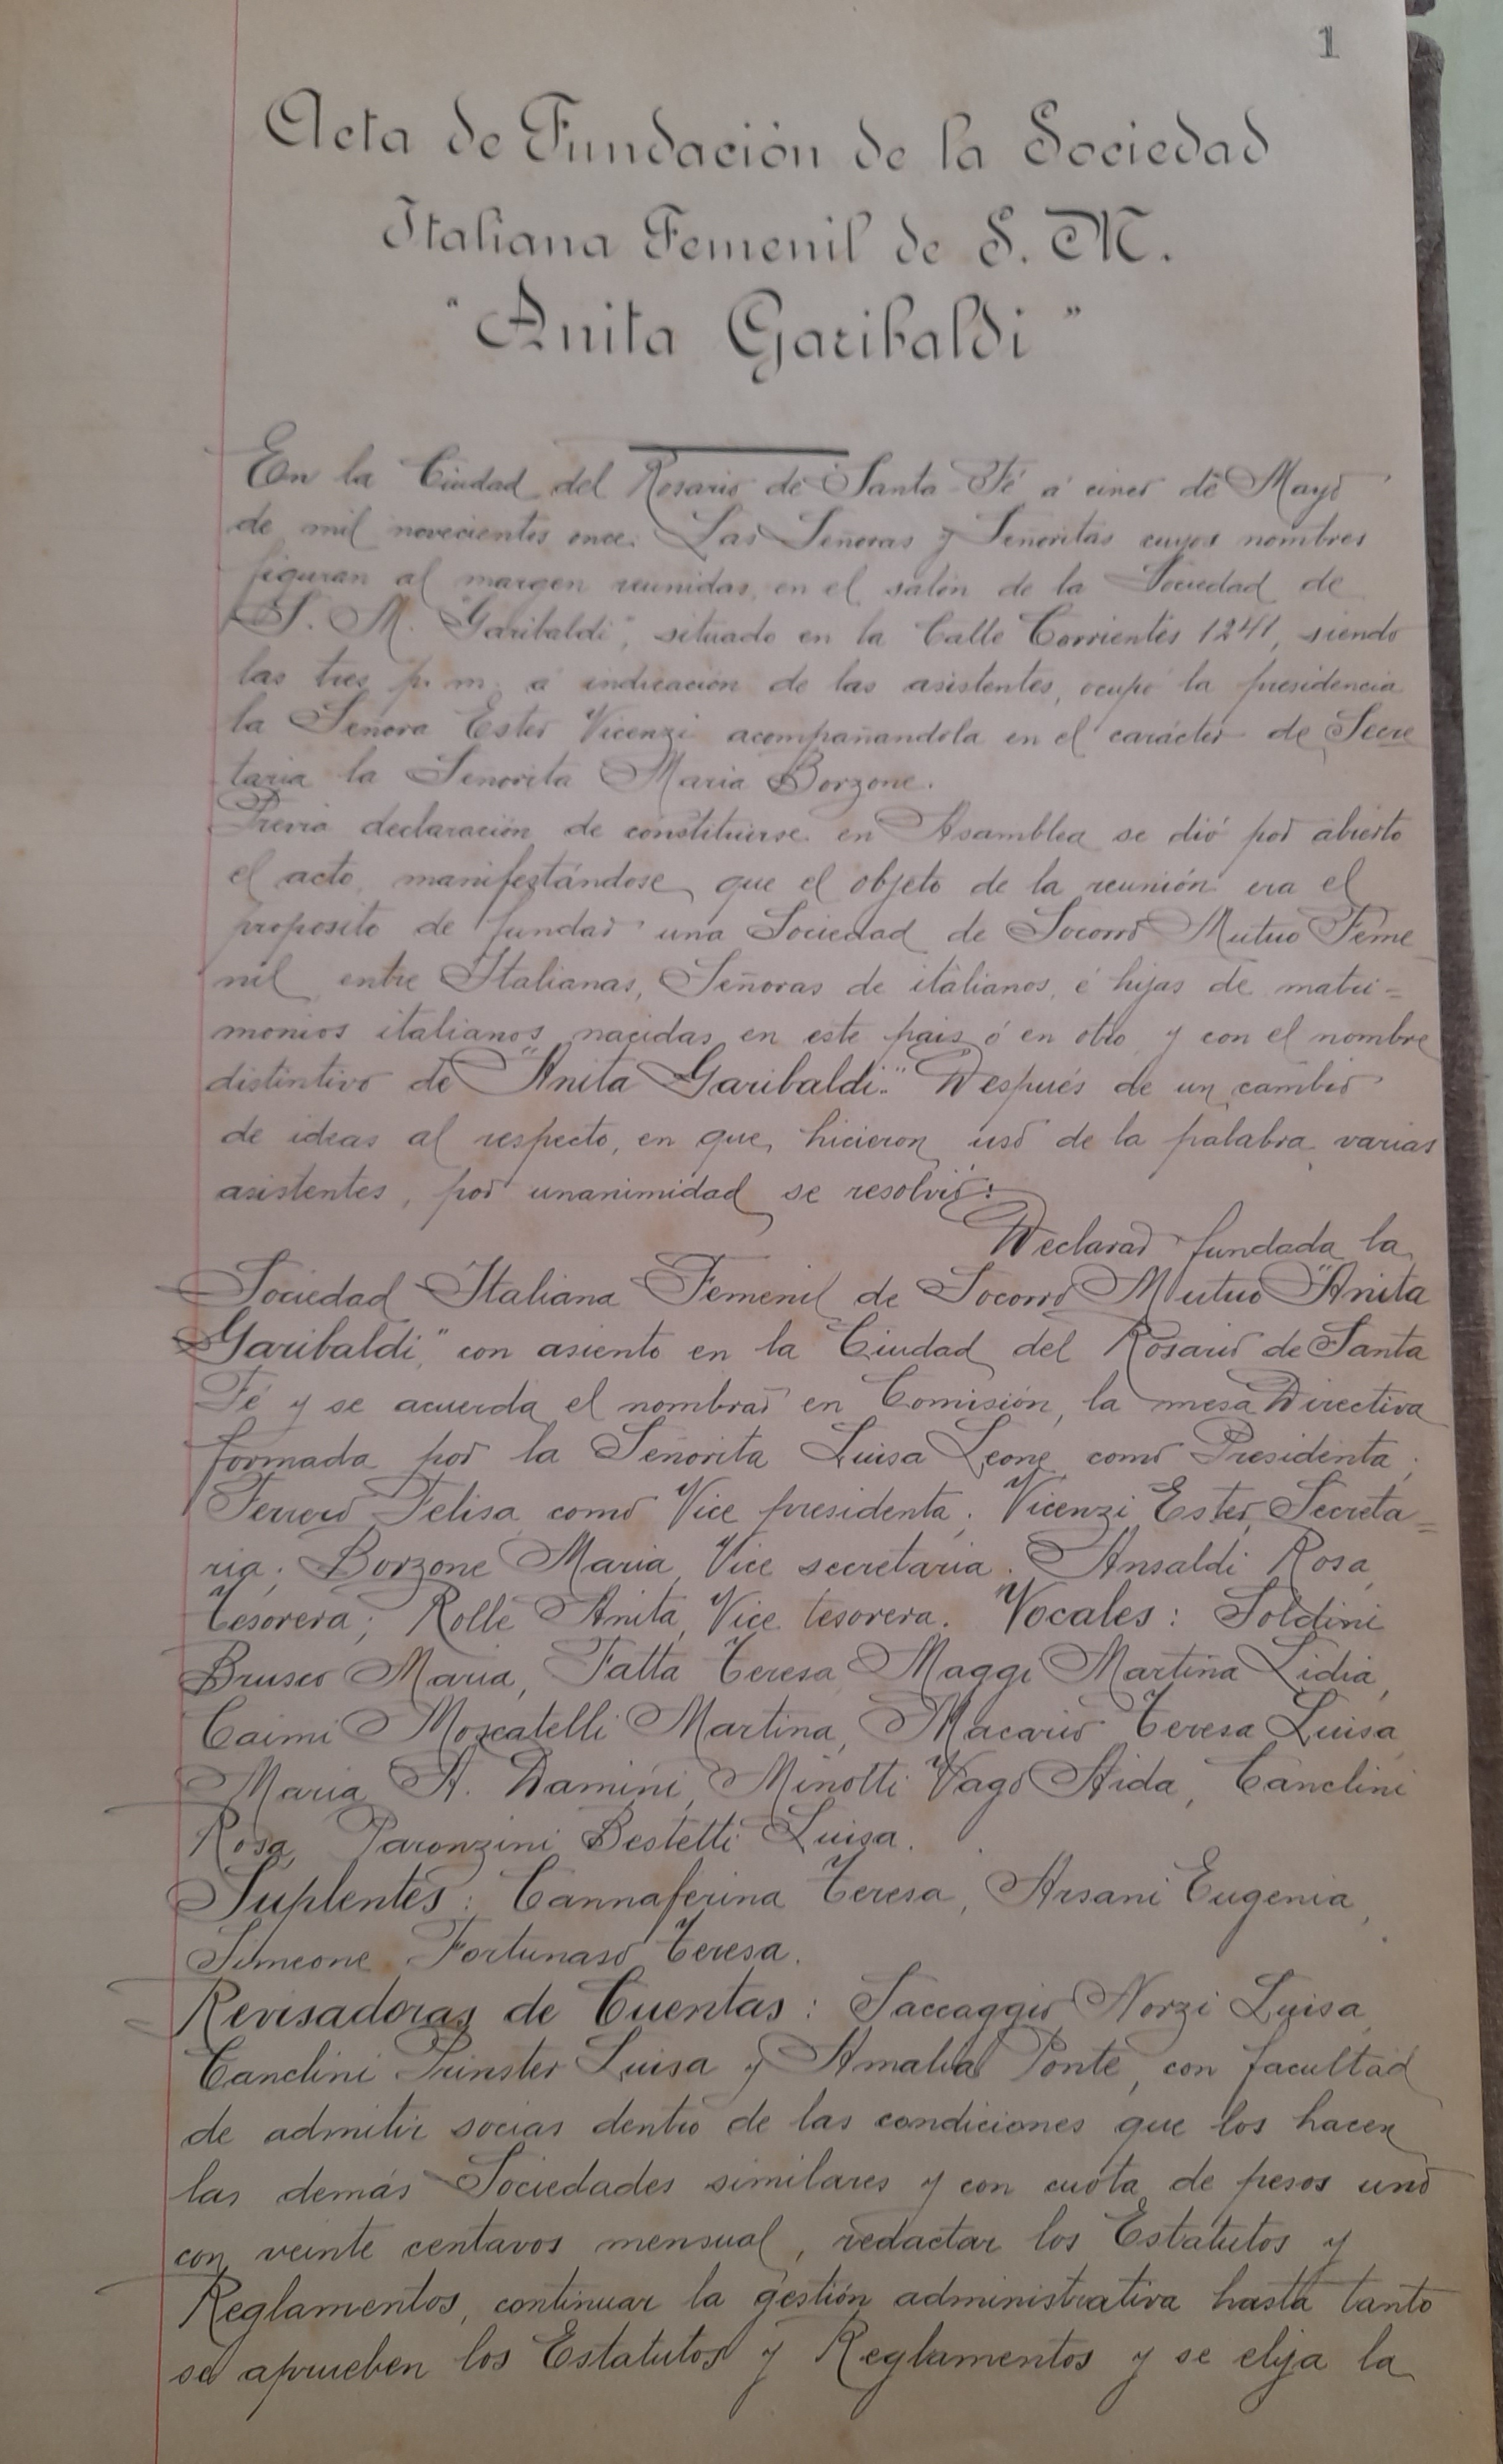 1
Acta de Fundación de la Sociedad
Italiana Femenil de S. M.
"Anita Garibaldi"
En la Ciudad del Rosario de Santa Fé á cinco de Mayo
de mil novecientos once. Las Señoras y Señoritas cuyos nombres
figuran al margen reunidas en el salón de la Sociedad de
S. M. "Garibaldi", situado en la Calle Corrientes 1241, siendo
las tres p. m. á indicación de las asistentes, ocupó la presidencia
la Señora Ester Vicenzi acompañandola en el carácter de Secre
taria la Señorita Maria Borzone.
Previa declaración de constituirse en Asamblea se dió por abierto
el acto manifestándose que el objeto de la reunión era el
proposito de fundar una Sociedad de Socorro Mutuo Feme
nil entre Italianas, Señoras de italianos, é hijas de matri=
monios italianos nacidas en este pais ó en otro y con el nombre
distintivo de "Anita Garibaldi." Después de un cambio
de ideas al respecto, en que hicieron uso de la palabra varias
asistentes, por unanimidad se resolvió:
Declarar fundada la
Sociedad Italiana Femenil de Socorro Mutuo "Anita
Garibaldi," con asiento en la Ciudad del Rosario de Santa
Fé y se acuerda el nombrar en Comisión, la mesa Directiva
formada por la Señorita Luisa Leone como Presidenta;
Ferrero Felisa como Vice presidenta; Vicenzi Ester Secreta=
ria; Borzone Maria Vice secretaria; Ansaldi Rosa,
Tesorera; Rollé Anita, Vice tesorera. Vocales: Soldini
Brusco Maria, Fatta Teresa, Maggi Martina Lidia,
Caimi Moscatelli Martina, Macario Teresa Luisa
Maria A. Damini, Minotti Vago Aida, Canclini
Rosa, Paronzini Bestetti Luisa.
Suplentes: Cannaferina Teresa, Arsani Eugenia,
Simeone Fortunaso Teresa.
Revisadoras de Cuentas: Saccaggio Norzi Luisa,
Canclini Prinster Luisa y Amalia Ponte, con facultad
de admitir socias dentro de las condiciones que los hacen
las demás Sociedades similares y con cuota de pesos uno
con veinte centavos mensual, redactar los Estatutos y
Reglamentos, continuar la gestión administrativa hasta tanto
se aprueben los Estatutos y Reglamentos y se elija la